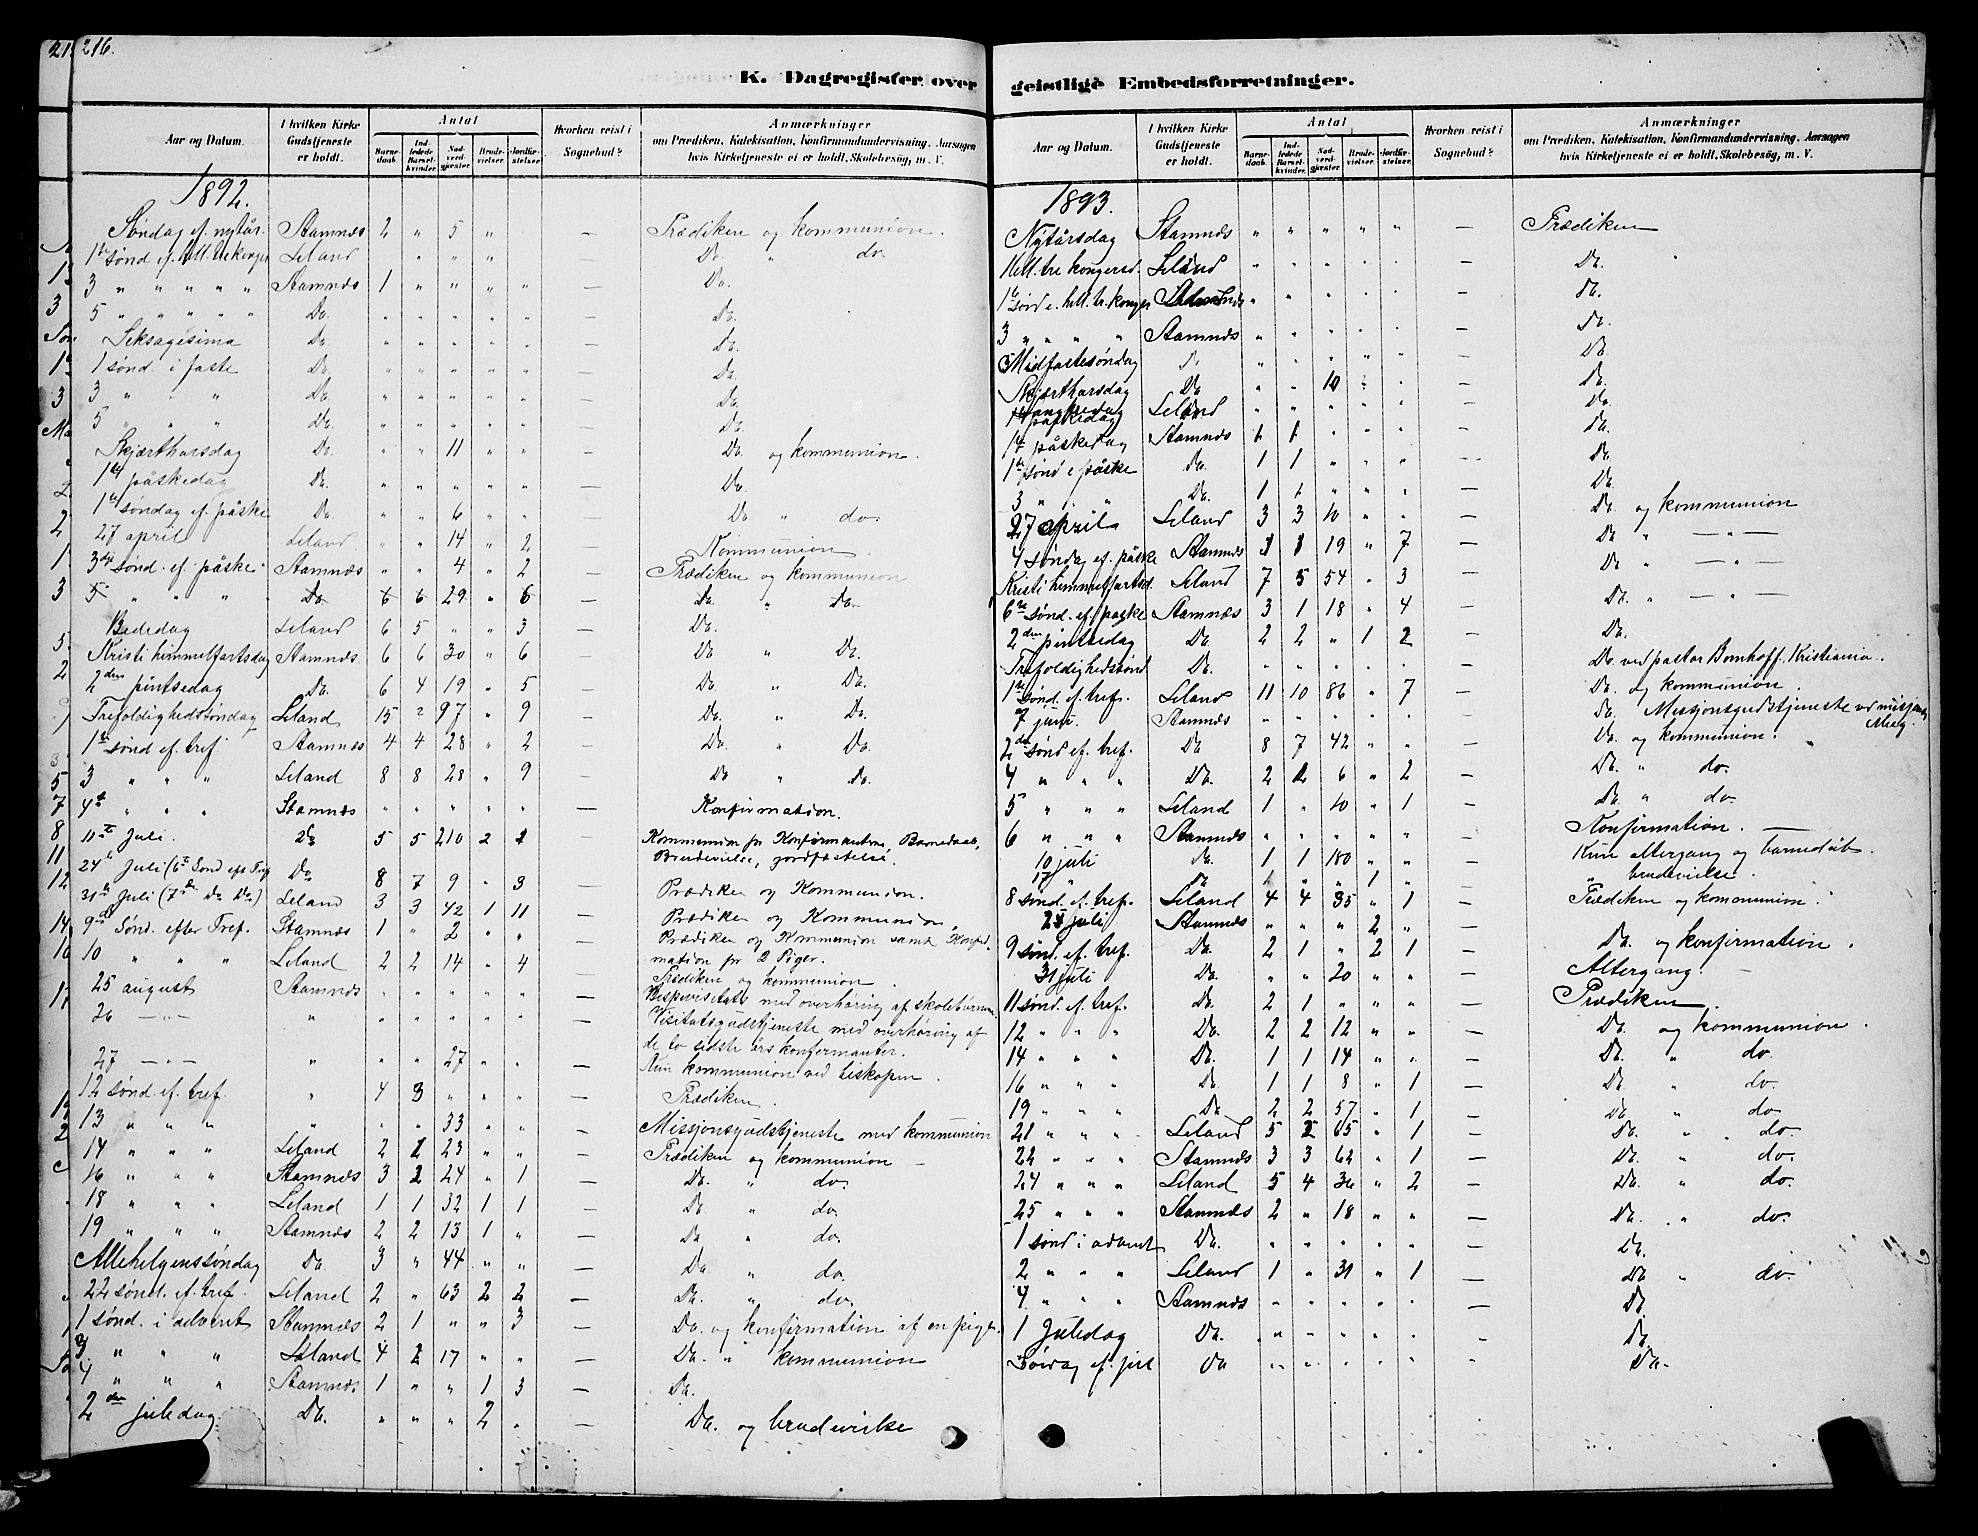 216.
K. Dagregister over
Aar og Datum. | I hvilken Kirke Gudstjeneste er holdt. | Antal | Barnedaab. | Indledede Barselkvinder. | Nadverdgjæster. | Brudevielser. | Jordfæstelser. | Hvorhen reist i Sognebud? | Anmærkninger om Prædiken, Katekisation, Konfirmandundervisning, Aarsagen hvis Kirketjeneste ei er holdt, Skolebesøg, m. V.
1892.
Søndag ef. nytår. Stamnæs 2 " 5 " — Prædiken og kommunion.
1ste sønd ef. hell. tre konger Leland " " " — Do. " do.
3 " " " " " Stamnæs 1 " " " " — Do.
5 " " " " " Do. " " " " " — Do.
Seksagesima Do " " " " " — Do.
1 sønd. i faste Do. " " " " " — Do.
3 " " " Do. " " " " " — Do.
5 " " " Do. " " " " " — Do.
Skjærthorsdag Do. " " 11 " " — Do. og kommunion.
1ste påskedag Do. " " " " " — Do.
1ste søndag ef. påske Do. " " 6 " " — Do " do.
27 april Leland " " 14 " 2 — Kommunion.
3die sønd. ef. påske Stamnæs " " 4 " 2 — Prædiken og kommunion
5 " " " " Do. 6 6 29 " 6 — Do. " Do.
Bededag Leland 6 5 " " 3 — Do.
Kristi himmelfartsdag Stamnæs 6 6 30 " 6 — Do " Do.
2den pintsedag Do. 6 4 19 " 5 — Do " Do.
Trefoldighedssøndag Leland 15 2 97 " 9 — Do " Do.
1ste sønd ef. tref. Stamnæs 4 4 28 " 2 — Do " Do.
3 " " " Leland 8 8 28 " 9 — Do " Do.
4de " " " Stamnæs " " " " " — Konfirmation.
11te Juli. Do 5 5 210 2 1 — Kommunion for Konfirmanterne, Barnedaab,
Brudevielse, jordfæstelse
24de Juli (6te Sønd efter Tref Do 8 7 9 " 3 — Prædiken og Kommunion.
31te Juli (7de Do Do) Leland 3 3 42 1 11 — Prædiken og Kommunion.
9de Sønd. efter Tref. Stamnæs 1 " 2 " " — Prædiken og Kommunion samt Konfir-
mation for 2 Piger.
10 " " " Leland 2 2 14 " 4 — Prædiken og kommunion
25 august Stamnæs " " " " " — Bispevisitats med overhøring af skolebørnene
26 —"— " " " " " " — Visitatsgudstjeneste med overhøring af
de to sidste års konfirmanter.
27 —"— " " " 27 " " — Kun kommunion ved biskopen.
12 sønd. ef. tref. " 4 3 " " " — Prædiken.
13 " " " " " " 33 " " — Missjonsgudstjeneste med kommunion
14 " " " Leland 2 2 23 " " — Prædiken og kommunion
16 " " " Stamnæs 3 2 24 " 1 — Do. " do.
18 " " " Leland 1 1 32 1 1 — Do " do.
19 " " " Stamnæs 2 2 13 1 " — Do " do.
Allehelgenssøndag Do. 3 " 44 " " — Do. " do.
22 sønd. ef. tref. Leland 2 " 63 2 2 — Do. " do.
1 sønd. i advent Stamnæs 2 1 " " 3 — Do. og konfirmation af en pige.
3 " " " Leland 4 2 17 " " — Do. " kommunion
4 " " " Stamnæs 1 " " 1 3 — Do.
2den juledag Do. " " " 2 " — Do. og brudevielse
geistlige Embedsforretninger.
Aar og Datum. | I hvilken Kirke Gudstjeneste er holdt. | Antal | Barnedaab. | Indledede Barselkvinder. | Nadverdgjæster. | Brudevielser. | Jordfæstelser. | Hvorhen reist i Sognebud? | Anmærkninger om Prædiken, Katekisation, Konfirmandundervisning, Aarsagen hvis Kirketjeneste ei er holdt, Skolebesøg, m. V.
1893.
Nytårsdag Stamnæs " " " " " — Prædiken
Hell. tre kongersd. Leland " " " " " — Do.
1ste sønd e. hell. tr. konger " " " " " — Do.
3 " " " " Stamnæs " " " " " — Do.
Midfastesøndag Do " " " " " — Do.
Skjærthorsdag Do " " 10 " " — Do.
Leland " " " " " — Do.
1ste påskedag Stamnæs 1 1 " " " — Do.
1ste sønd e påske Do. 1 1 " " " — Do.
3 " " " Do. 1 1 " " " — Do.
27 april Leland 3 3 10 " " — Do og kommunion
4 søndag ef. påske Stamnæs 1 1 19 " 7 — Do " —"—
Kristi himmelfartsd. Leland 7 5 54 " 3 — Do " —"—
6te sønd. ef. påske Stamnæs 3 1 18 " 4 — Do. " —"—
2den pintsedag Do. 2 2 " 1 2 — Do.
Trefoldighedssønd Do. " " " " " — Do. ved pastor Bomhoff. Kristiania.
1ste sønd. ef. tref. Leland 11 10 86 " 7 — Do. og kommunion.
7 juni. Stamnæs " " " " " — Do. Missjonsgudstjeneste ved
2den sønd ef. tref. Do 8 7 42 " " — Do. og kommunion.
4 " " " Do. 2 2 6 " 2 — Do. " do.
5 " " " Leland 1 " 10 " 1 — Do " do.
6 " " " Stamnæs " " " " " — Konfirmation. —
10 juli Do. 1 1 180 " " — Kun altergang og barnedåb.
17 " Do 1 " " 1 " brudevielse.
8 sønd. ef. tref. Leland 4 4 35 " 1 — Prædiken og kommunion
Juli Stamnæs " " " 2 " —
9 sønd. ef. tref. Do. 2 1 " 2 1 — Do. og konfirmation.
31 juli Do. " " 20 " " — Altergang.
11 sønd. ef. tref. Do. 2 1 " " " — Prædiken.
12 " " " Do. 2 2 12 " " — Do og kommunion.
14 " " " Do. 1 1 14 " " — Do. " do.
16 " " " Do. 1 1 8 " 1 — Do " do.
19 " " " Do 2 2 57 " 1 — Do " do
21 " " " Leland 5 2 65 " 1 — Do. " do.
22 " " " Stamnæs 3 3 62 " 1 — Do. " do.
24 " " " Leland 5 4 36 " 2 — Do. " do.
25 " " " Stamnæs 2 " 18 " " — Do. " do.
1 sønd i advent Do. " " " " " — Do.
2 " " " Leland 1 " 31 " 1 — Do " do.
4 " " " Stamnæs " " " " " — Do
1 Juledag Do. " " " " " — Do.
Do " " " " " — Do.